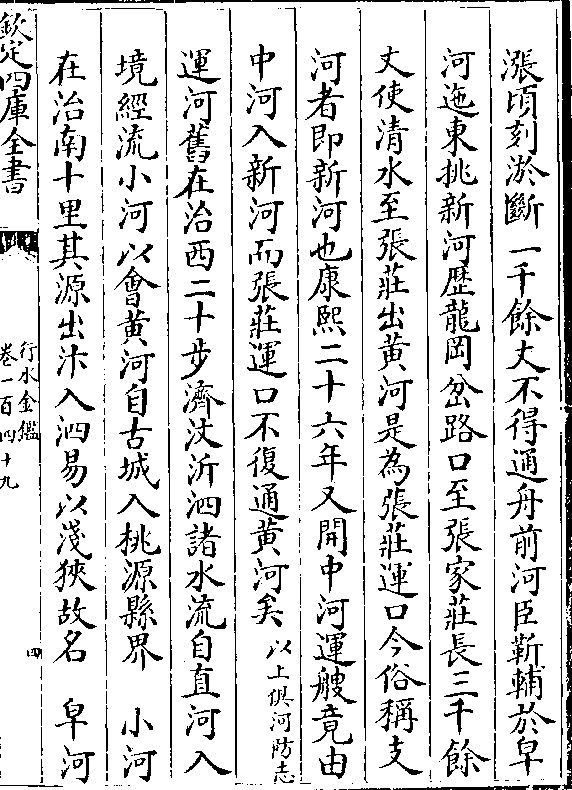 漲頃刻淤斷一千餘丈不得通舟前河臣靳輔於皁
河迤東挑新河歷龍岡岔路口至張家莊長三千餘
丈使清水至張莊出黃河是為張莊運口今俗稱支
河者即新河也康熙二十六年又開中河運艘竟由
中河入新河而張莊運口不復通黃河矣 以上俱河防志
運河舊在治西二十步濟汶沂泗諸水流自直河入
境經流小河以會黃河自古城入桃源縣界 小河
在治南十里其源出汴入泗易以淺狹故名 皁河
欽定四庫全書
行水金鑑
卷一百四十九
四